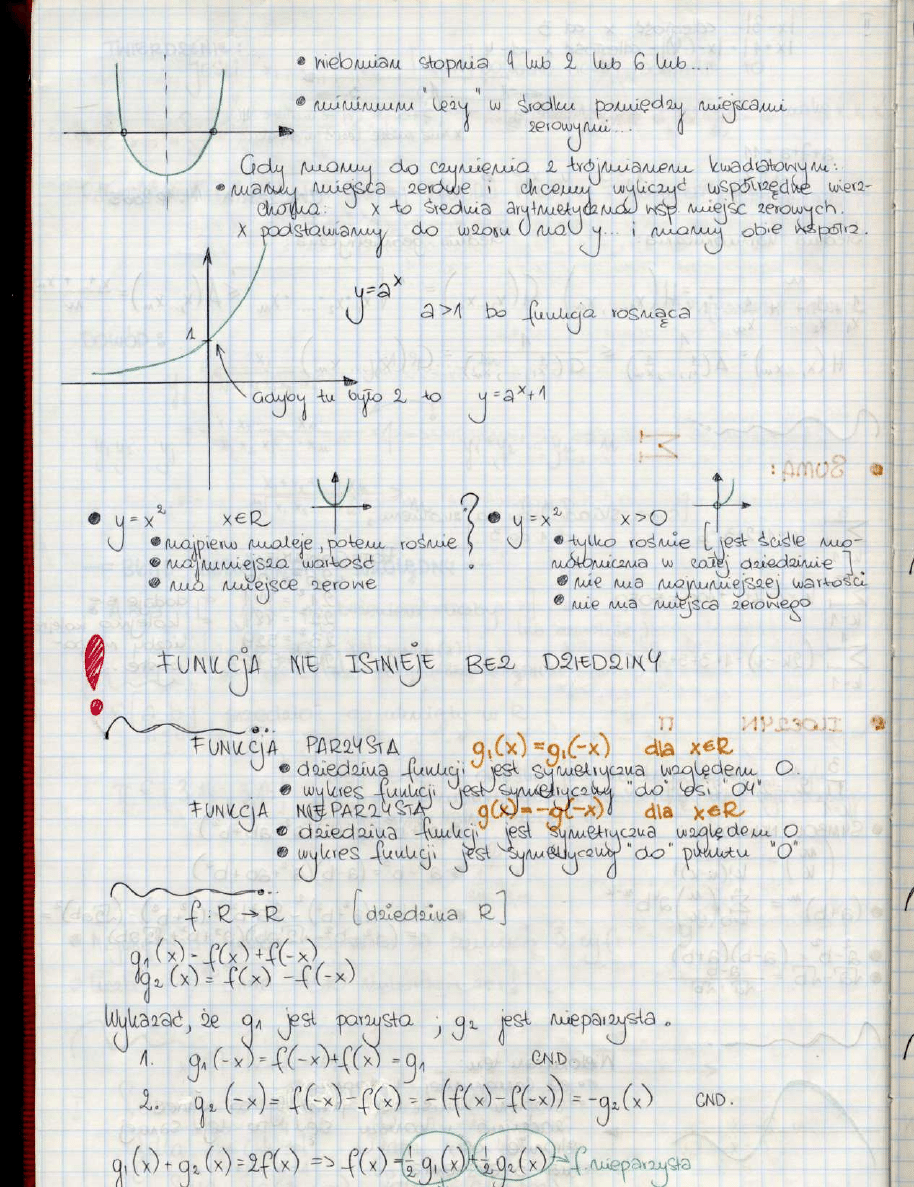 • wielomian stopnia 4 lub 2 lub 6 lub...
• minimum "leży" w środku pomiędzy miejscami
zerowymi...
Gdy mamy do czynienia z trójmianem kwadratowym:
• mamy miejsca zerowe i chcemy wyliczyć współrzędne wierz-
chołka: x to średnia arytmetyczna wsp. miejsc zerowych.
x podstawiamy do wzoru (na) y... i mamy obie współrz.
y=aˣ
a>1 bo funkcja rosnąca
1
gdyby tu było 2 to y=aˣ+1
• y=x² x∈R
• najpierw maleje, potem rośnie
• najmniejsza wartość
• ma miejsce zerowe
?
• y=x² x>0
• tylko rośnie [jest ściśle mo-
notoniczna w całej dziedzinie]
• nie ma najmniejszej wartości
• nie ma miejsca zerowego
! FUNKCJA NIE ISTNIEJE BEZ DZIEDZINY
FUNKCJA PARZYSTA g₁(x)=g₁(-x) dla x∈R
• dziedzina funkcji jest symetryczna względem 0.
• wykres funkcji jest symetryczny "do" osi "OY"
FUNKCJA NIEPARZYSTA g(x)=-g(-x) dla x∈R
• dziedzina funkcji jest symetryczna względem 0
• wykres funkcji jest symetryczny "do" punktu "0"
f: R→R [dziedzina R]
g₁(x)=f(x)+f(-x)
g₂(x)=f(x)-f(-x)
Wykazać, że g₁ jest parzysta ; g₂ jest nieparzysta.
1. g₁(-x)=f(-x)+f(x)=g₁ CND.
2. g₂(-x)=f(-x)-f(x)=-(f(x)-f(-x))=-g₂(x) CND.
g₁(x)+g₂(x)=2f(x) => f(x)=½g₁(x)+½g₂(x) → f. nieparzysta